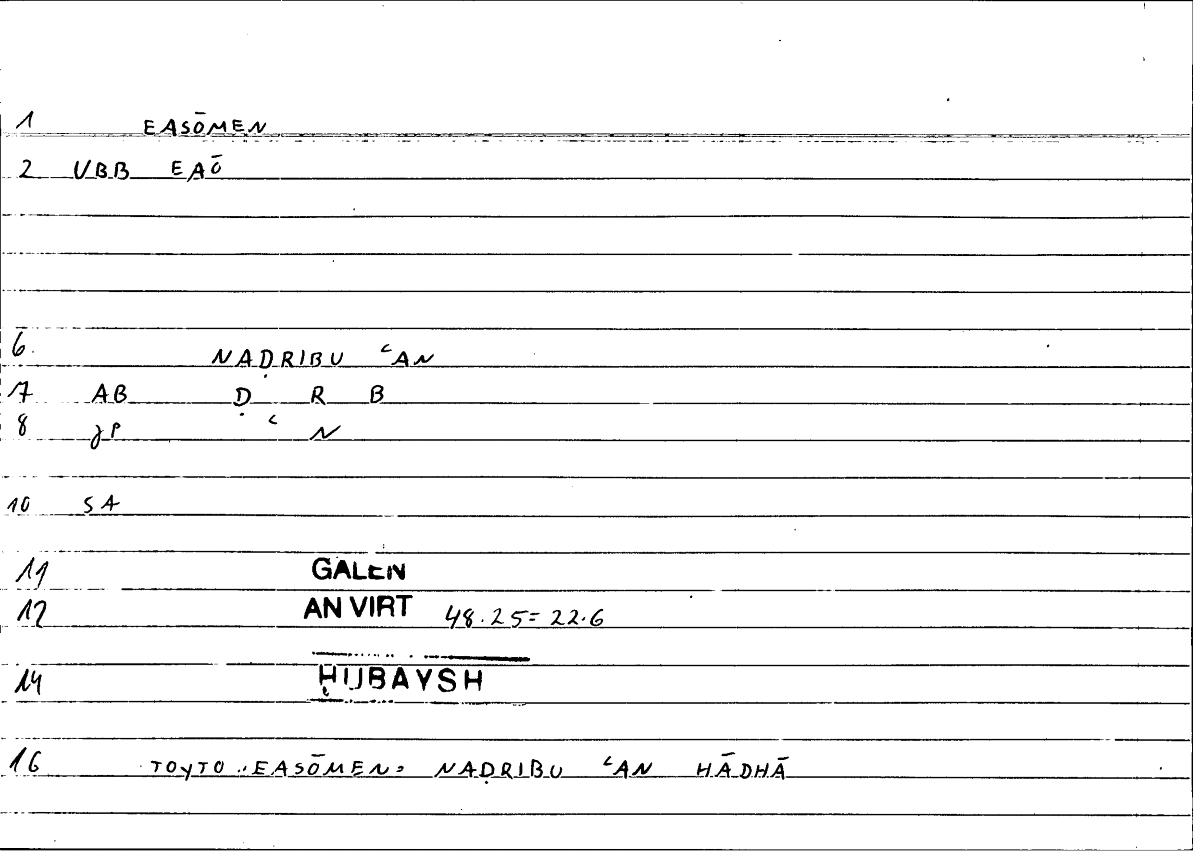 1 EASŌMEN
2 VBB EAŌ
6. NAḌRIBU ʿAN
7 AB Ḍ R B
8 JP ʿ N
10 SA
11 GALEN
12 AN VIRT 48.25=22.6
14 ḤUBAYSH
16 TOYTO :EASŌMEN: NAḌRIBU ʿAN HĀDHĀ